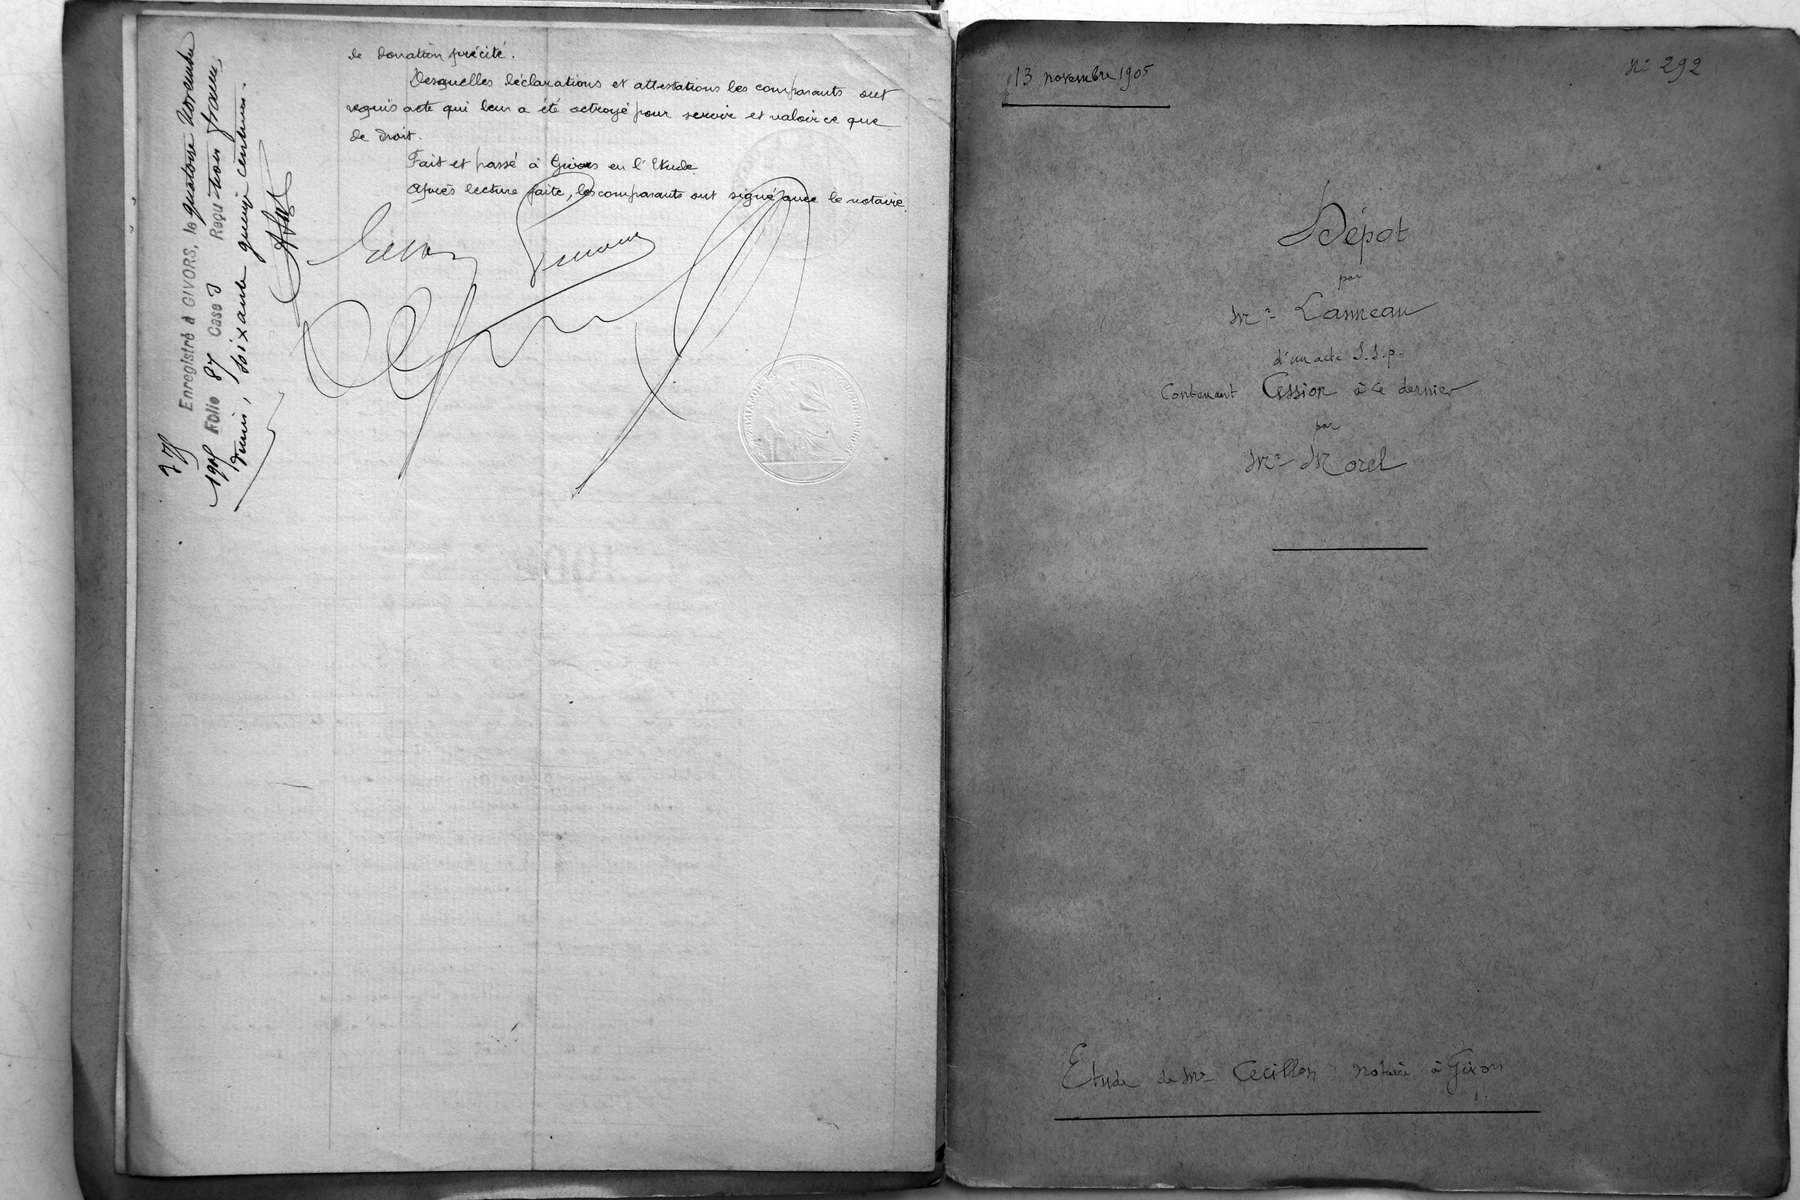 de donation précité.
Desquelles déclarations et attestations les comparants ont
requis acte qui leur a été octroyé pour servir et valoir ce que
de droit.
Fait et passé à Givors en l'Etude
Après lecture faite, les comparants ont signé avec le notaire.
Enregistré à GIVORS, le quatorze Novembre
1905 Folio 87 Case 3 Reçu trois francs,
Decimes, soixante quinze centimes.
13 novembre 1905
N° 292
Dépôt
par
Mr Lanneau
d'un acte S.S.p.
Contenant Cession à ce dernier
par
Mr Morel
Etude de Me Cécillon notaire à Givors